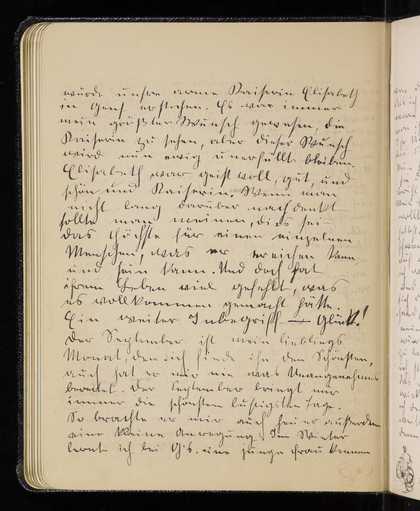 wurde unsre arme Kaiserin Elisabeth
in Genf erstochen. Es war immer
mein größter Wunsch gewesen, die
Kaiserin zu sehen, aber dieser Wunsch
wird nun ewig unerfüllt bleiben.
Elisabeth war geistvoll, gut, und
schön und Kaiserin. Wenn man
nicht lang darüber nachdenkt
sollte man meinen, dies sei
das Höchste für einen einzelnen
Menschen, was er erreichen kann
und sein kann. Und doch hat
ihrem Leben viel gefehlt, was
es vollkommen gemacht hätte.
Ein weiter Inbegriff – Glück!
Der September ist mein lieblings
Monat, denn ich finde ihn den Schönsten,
auch hat er mir nie was Unangenehmes
bereitet. Der September bringt mir
immer die schönsten lustigsten Tage.
So brachte er mir auch heuer außerdem
eine kleine Anregung. Im Winter
lernte ich bei eine junge Frau kennen